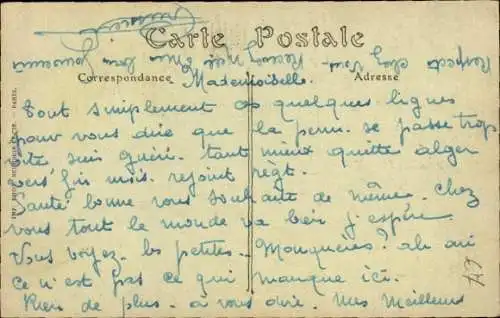 Carte Postale
Correspondance
Adresse
Mademoiselle.
Tout simplement ces quelques lignes
pour vous dire que la perm. se passe trop
vite suis guéri. tant mieux quitte alger
vers fin mois. rejoint règt.
Santé bonne vous souhaite de même. chez
vous tout le monde va bien j'espère.
Vous voyez. les petites Mouquères! ah oui
ce n'est pas ce qui manque ici.
Rien de plus. à vous dire. Mes Meilleurs
Respects chez vous
bon Souvenir